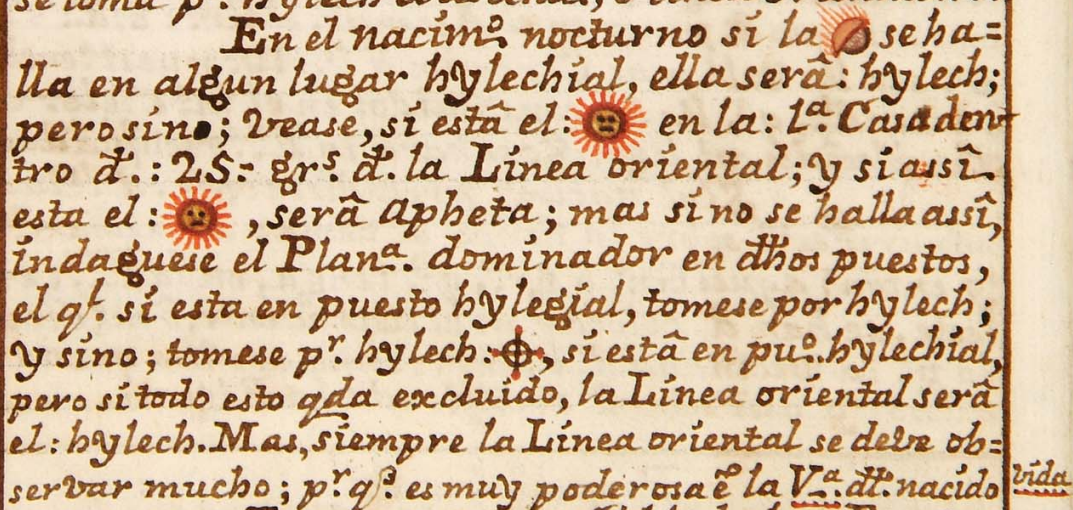 En el nacim.º nocturno si la se ha=
lla en algun lugar hylechial, ella serâ: hylech;
pero sino; vease, si estâ el: en la: 1.ª Casa den
tro d.: 25: gr.s d. la Linea oriental; y si assî
esta el: , serâ Apheta; mas si no se halla assî,
indaguese el Plan.ª dominador en dhos puestos,
el q.l si esta en puesto hylegial, tomese por hylech;
y sino; tomese p.r hylech: , si estâ en pu.º hylechial,
pero si todo esto qda excluido, la Linea oriental serâ
el: hylech. Mas, siempre la Linea oriental se deve ob=
servar mucho; p.r q.e es muy poderosa ē la V.ª d.l nacido
vida